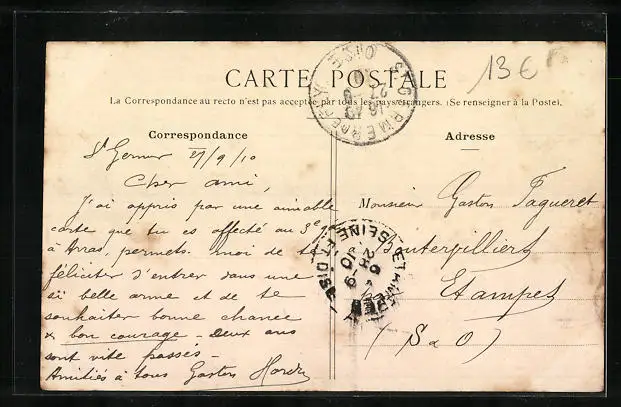 CARTE POSTALE
13€
La Correspondance au recto n'est pas acceptée par tous les pays étrangers. (Se renseigner à la Poste).
Correspondance
St Germer 27/9/10
Cher ami,
J'ai appris par une aimable
carte que tu es affecté au 3e
à Arras, permets moi de te
féliciter d'entrer dans une
si belle arme et de te
souhaiter bonne chance
& bon courage - Deux ans
sont vite passés -
Amitiés à tous Gaston
Adresse
Monsieur Gaston Paqueret
à
Etampes
(S & O)
ST GERMER OISE
27 -9 10
ETAMPES
SEINE ET OISE
28 -9 10